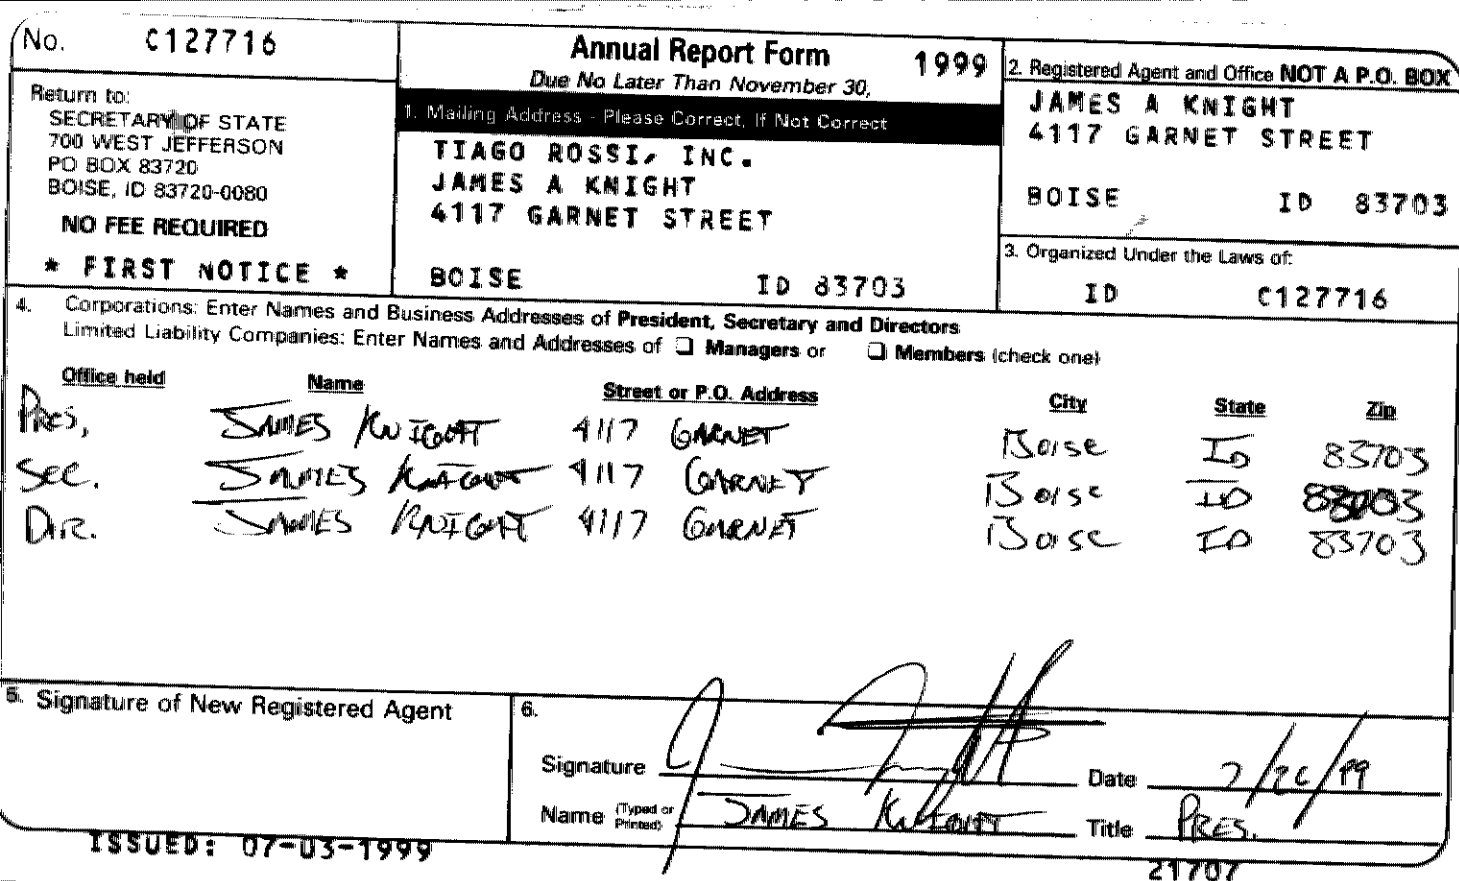 No. C127716
Return to:
SECRETARY OF STATE
700 WEST JEFFERSON
PO BOX 83720
BOISE, ID 83720-0080
NO FEE REQUIRED
* FIRST NOTICE *
Annual Report Form 1999
Due No Later Than November 30,
1. Mailing Address - Please Correct, If Not Correct
TIAGO ROSSI, INC.
JAMES A KNIGHT
4117 GARNET STREET
BOISE ID 83703
2. Registered Agent and Office NOT A P.O. BOX
JAMES A KNIGHT
4117 GARNET STREET
BOISE ID 83703
3. Organized Under the Laws of:
ID C127716
4. Corporations: Enter Names and Business Addresses of President, Secretary and Directors
Limited Liability Companies: Enter Names and Addresses of ☐ Managers or ☐ Members (check one)
Office held Name Street or P.O. Address City State Zip
Pres, JAMES KNIGHT 4117 GARNET Boise ID 83703
Sec. JAMES KNIGHT 4117 GARNET Boise ID 83703
Dir. JAMES KNIGHT 4117 GARNET Boise ID 83703
5. Signature of New Registered Agent
6.
Signature Date 7/26/99
Name (Typed or Printed) JAMES KNIGHT Title PRES.
ISSUED: 07-03-1999
21707